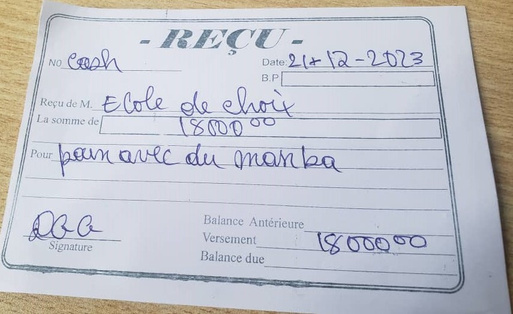 - REÇU -
NO cash Date: 21+12-2023
B.P
Reçu de M. Ecole de choix
La somme de 18000 00
Pour pain avec du manba
Signature
Balance Antérieure
Versement 18000 00
Balance due